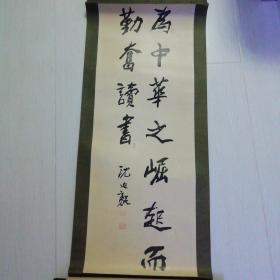 為中華之崛起而
勤奮讀書
沈延毅